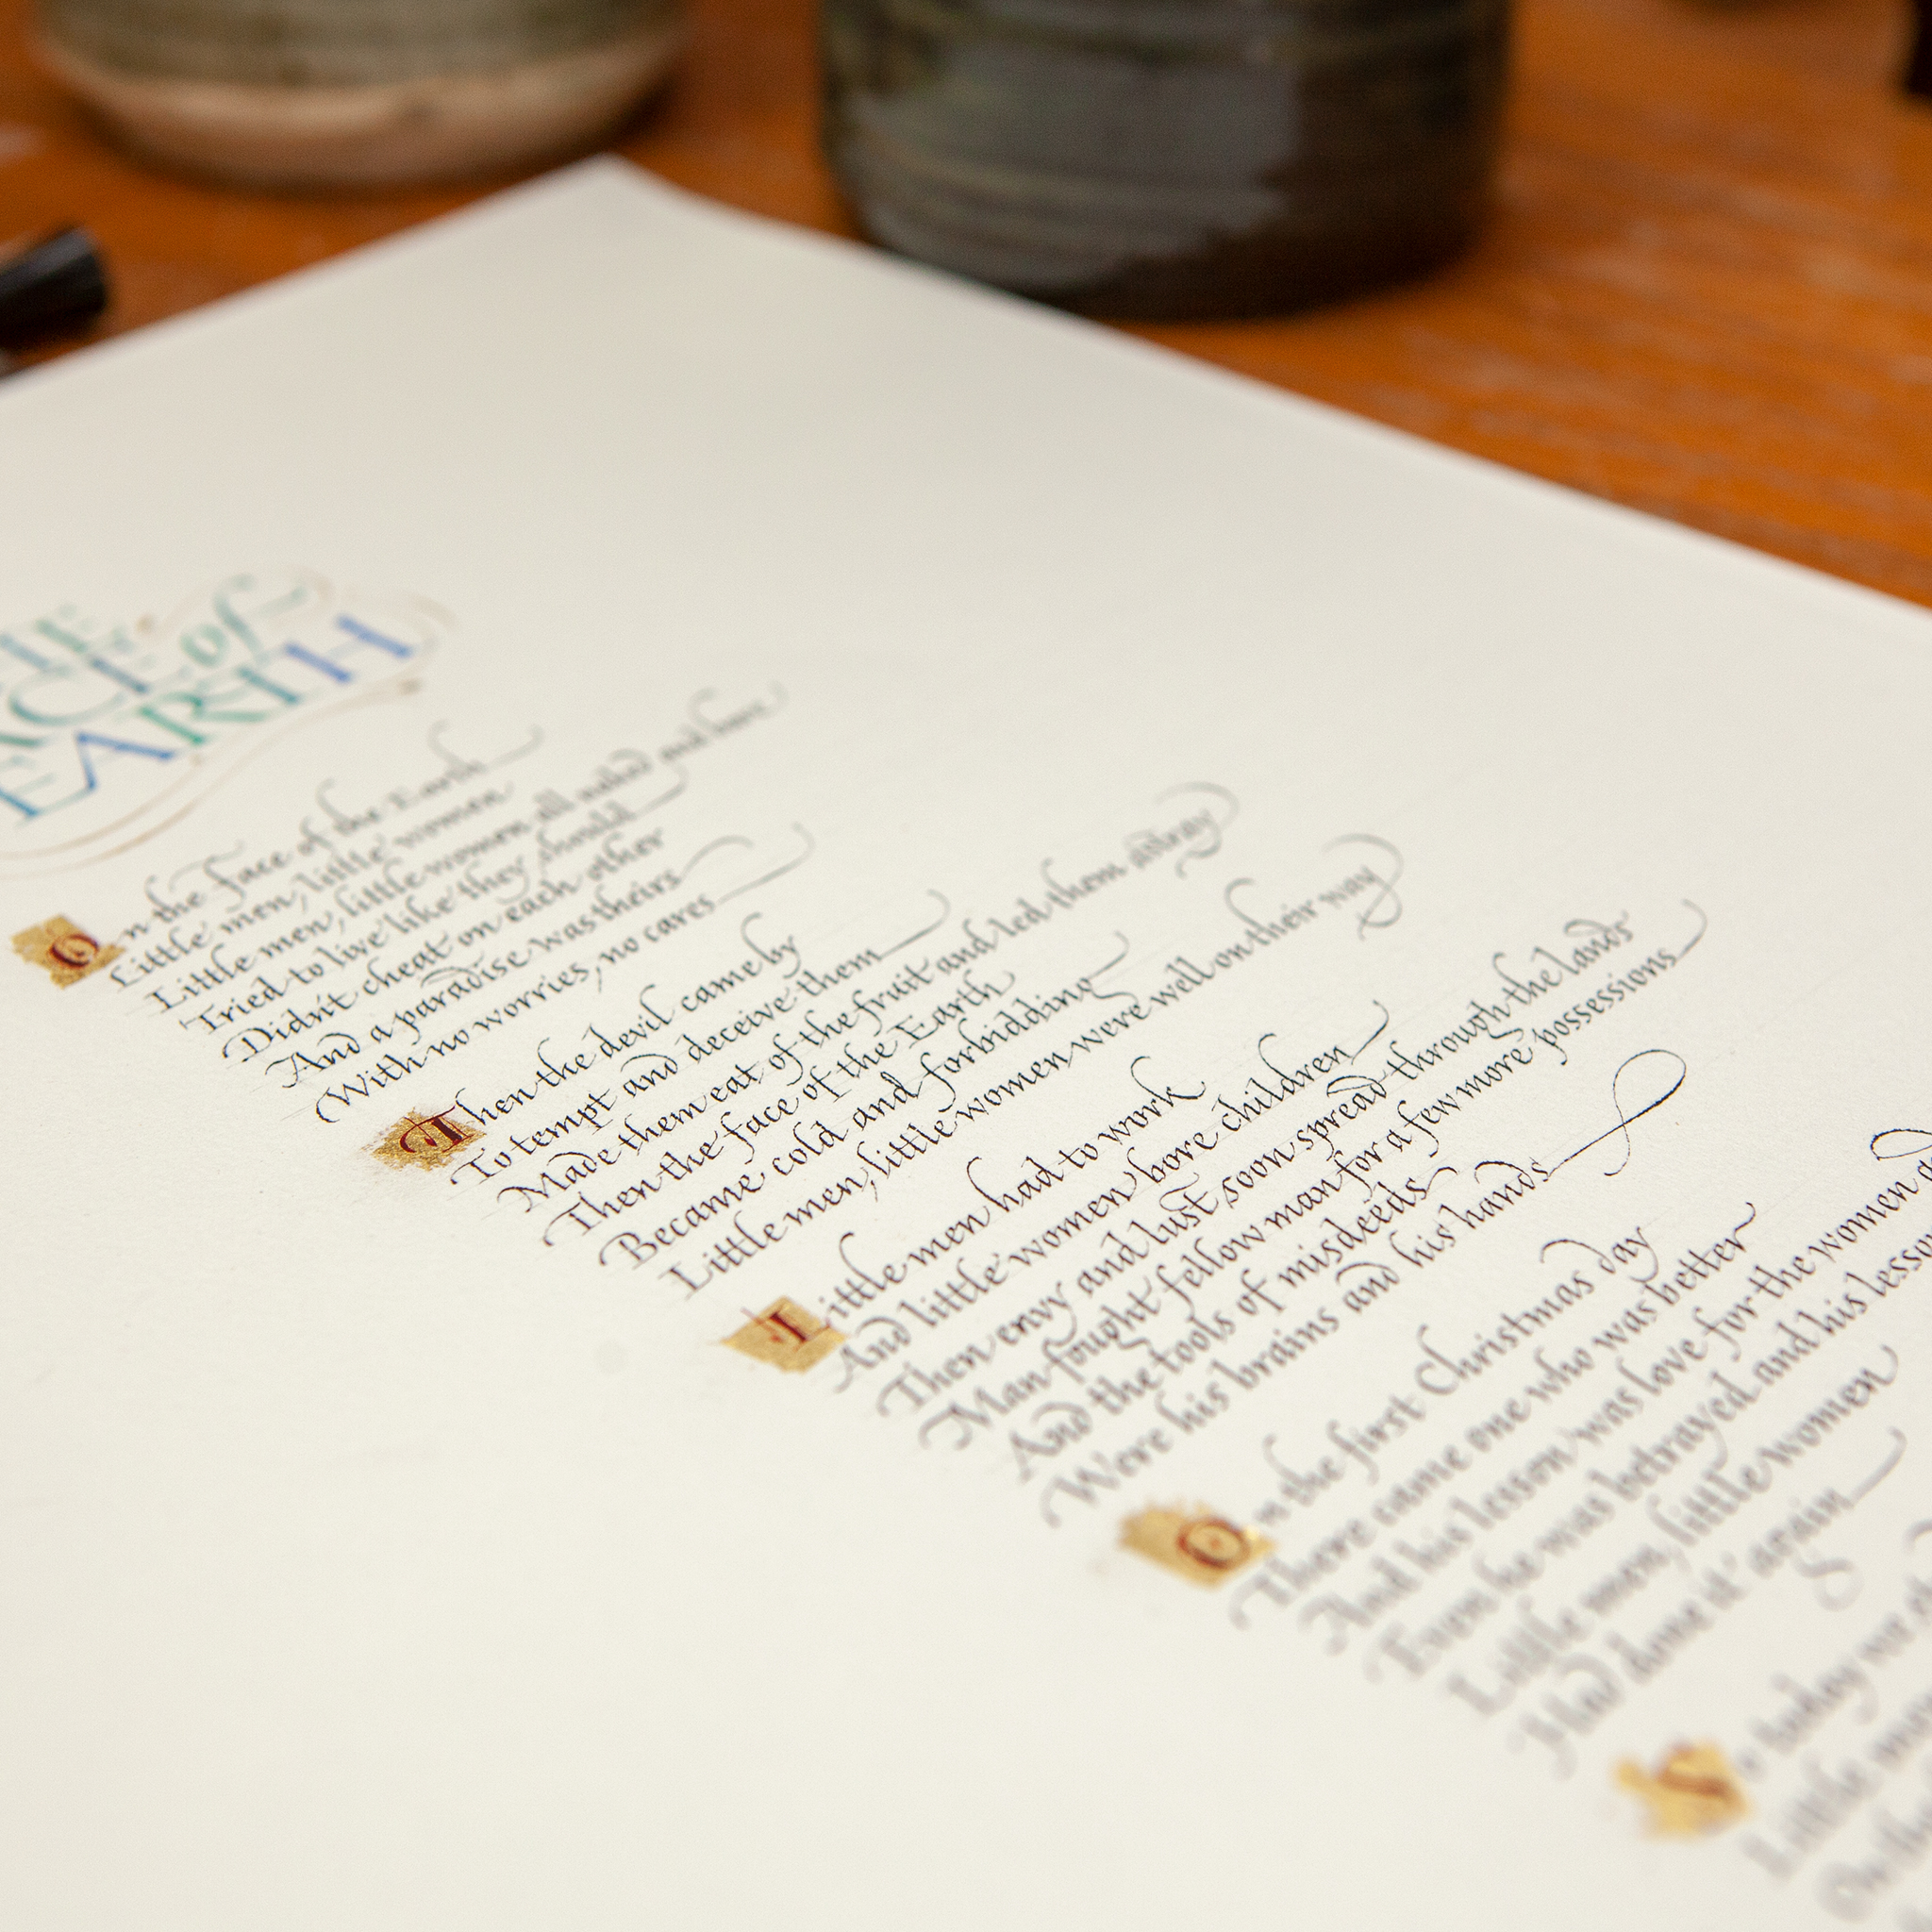 ACE of
EARTH
On the face of the Earth
Little men, little women
Little men, little women all naked and bare
Tried to live like they should
Didn't cheat on each other
And a paradise was theirs
With no worries, no cares
Then the devil came by
To tempt and deceive them
Made them eat of the fruit and led them astray
Then the face of the Earth
Became cold and forbidding
Little men, little women were well on their way
Little men had to work
And little women bore children
Then envy and lust soon spread through the lands
Man fought fellow man for a few more possessions
And the tools of misdeeds
Were his brains and his hands
On the first Christmas day
There came one who was better
And his lesson was love for the women
Even he was betrayed and his lesson
Little men, little women
Had done it again
So today we
Little
On the